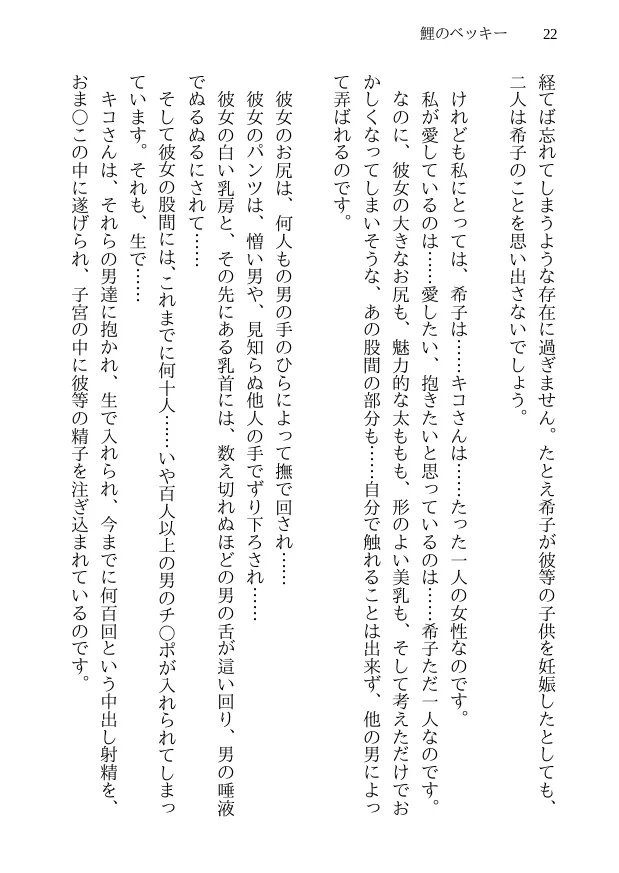 鯉のベッキー 22
経てば忘れてしまうような存在に過ぎません。たとえ希子が彼等の子供を妊娠したとしても、
二人は希子のことを思い出さないでしょう。
けれども私にとっては、希子は……キコさんは……たった一人の女性なのです。
私が愛しているのは……愛したい、抱きたいと思っているのは……希子ただ一人なのです。
なのに、彼女の大きなお尻も、魅力的な太ももも、形のよい美乳も、そして考えただけでお
かしくなってしまいそうな、あの股間の部分も……自分で触れることは出来ず、他の男によっ
て弄ばれるのです。
彼女のお尻は、何人もの男の手のひらによって撫で回され……
彼女のパンツは、憎い男や、見知らぬ他人の手でずり下ろされ……
彼女の白い乳房と、その先にある乳首には、数え切れぬほどの男の舌が這い回り、男の唾液
でぬるぬるにされて……
そして彼女の股間には、これまでに何十人……いや百人以上の男のチ○ポが入れられてしまっ
ています。それも、生で……
キコさんは、それらの男達に抱かれ、生で入れられ、今までに何百回という中出し射精を、
おま○この中に遂げられ、子宮の中に彼等の精子を注ぎ込まれているのです。